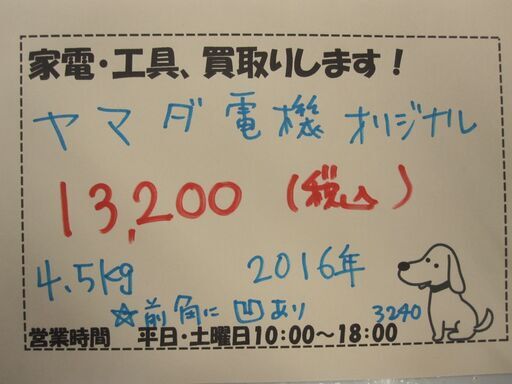 家電・工具、買取りします！
ヤマダ電機 オリジナル
13,200 （税込）
4.5kg 2016年
☆前角に凹あり 3240
営業時間 平日・土曜日10:00～18:00